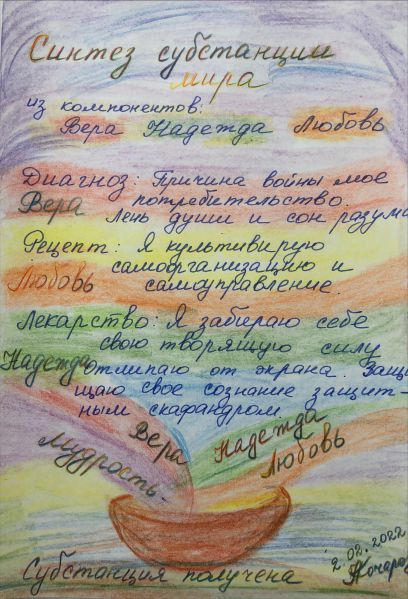 Синтез субстанции
мира
из компонентов:
Вера Надежда Любовь
Диагноз: Причина войны мое
Вера потребительство.
лень души и сон разума
Рецепт: Я культивирую
Любовь самоорганизацию и
самоуправление.
Лекарство: Я забираю себе
свою творящую силу
Надежда отлипаю от экрана. Защи
щаю свое сознание защит-
ным скафандром
Мудрость- Вера Надежда
Любовь
Субстанция получена
2.02.2022